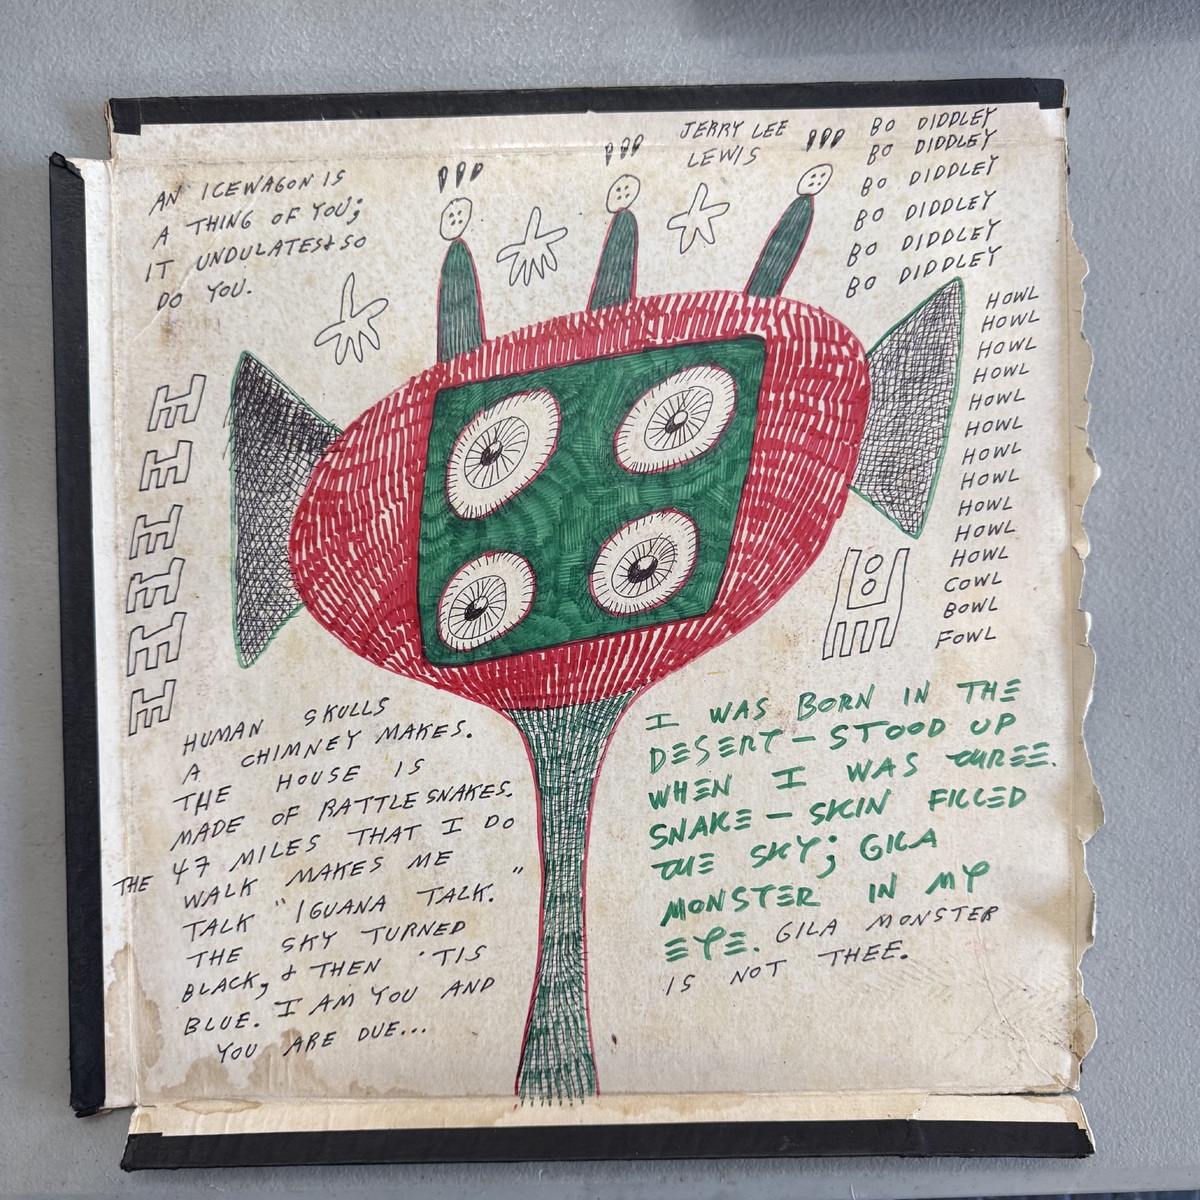 AN ICEWAGON IS
A THING OF YOU;
IT UNDULATES & SO
DO YOU.
JERRY LEE
LEWIS
BO DIDDLEY
BO DIDDLEY
BO DIDDLEY
BO DIDDLEY
BO DIDDLEY
BO DIDDLEY
HOWL
HOWL
HOWL
HOWL
HOWL
HOWL
HOWL
HOWL
HOWL
HOWL
HOWL
COWL
BOWL
FOWL
HUMAN SKULLS
A CHIMNEY MAKES.
THE HOUSE IS
MADE OF RATTLESNAKES.
THE 47 MILES THAT I DO
WALK MAKES ME
TALK "IGUANA TALK."
THE SKY TURNED
BLACK, & THEN 'TIS
BLUE. I AM YOU AND
YOU ARE DUE...
I WAS BORN IN THE
DESERT — STOOD UP
WHEN I WAS THREE.
SNAKE — SKIN FILLED
THE SKY; GILA
MONSTER IN MY
EYE. GILA MONSTER
IS NOT THEE.